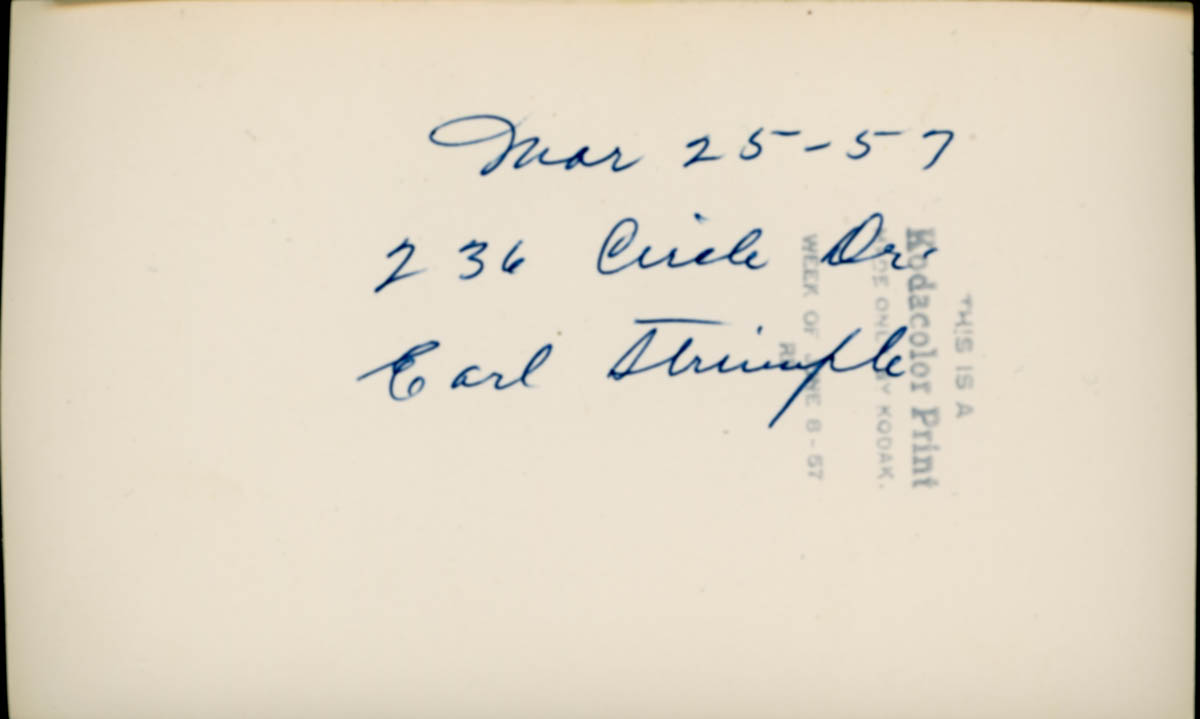 Mar 25-57
236 Circle Dr.
Earl Strimple
THIS IS A
Kodacolor Print
MADE ONLY BY KODAK.
WEEK OF JUNE 8-57